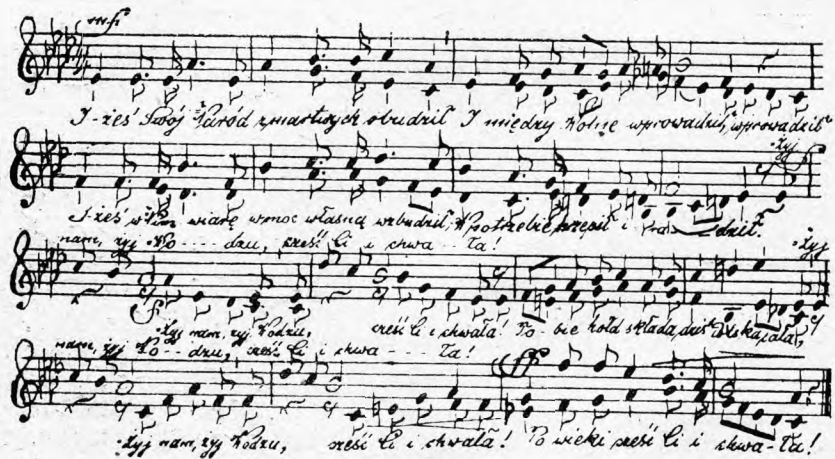 mf
I-żeś Swój Naród z martwych obudził I między Wolne wprowadził, wprowadził
Żyj
I-żeś w Nim wiarę w moc własną wzbudził, W potrzebie krzepił i dził.
nam, żyj Wo---dzu, cześć Ci i chwa--ła! Żyj
f
Żyj nam, żyj Wodzu, cześć Ci i chwała! To-bie hołd składa dziś Polska cała,
nam, żyj Wo--dzu, cześć Ci i chwa---ła!
ff
Żyj nam, żyj Wodzu, cześć Ci i chwała! Po wieki cześć Ci i chwa-ła!